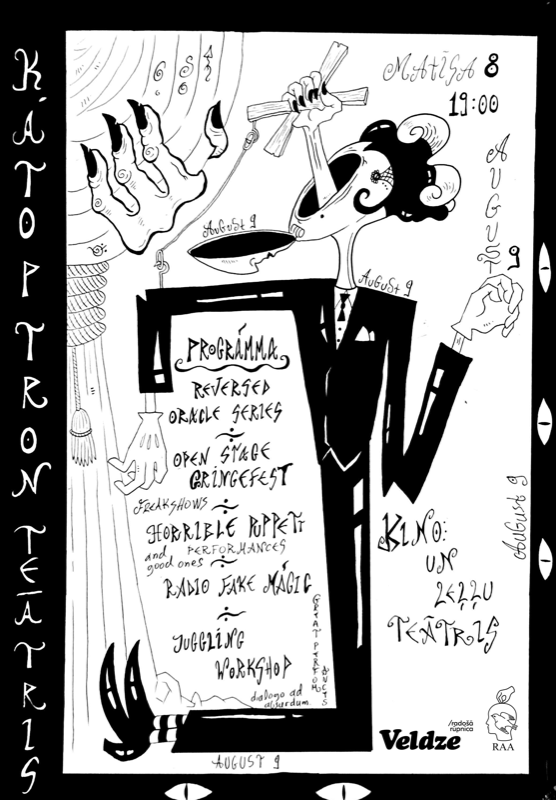 KATOPTRON TEĀTRIS
MATĪSA 8
19:00
AUGUST 9
AUGUST 9
AUGUST 9
PROGRÁMMA
REVERSED
ORACLE SERIES
OPEN STAGE
GRINGEFEST
FREAKSHOWS
HORRIBLE PUPPETT
and PERFORMANCES
good ones
RADIO FAKE MÁGIC
JUGGLING
WORKSHOP
dialogo ad
absurdum
GREAT PERFOM
DUCTS
AUGUST 9
KINO:
UN
LEĻĻU
TEĀTRIS
/radošā
rūpnīca
Veldze
RAA
AUGUST 9